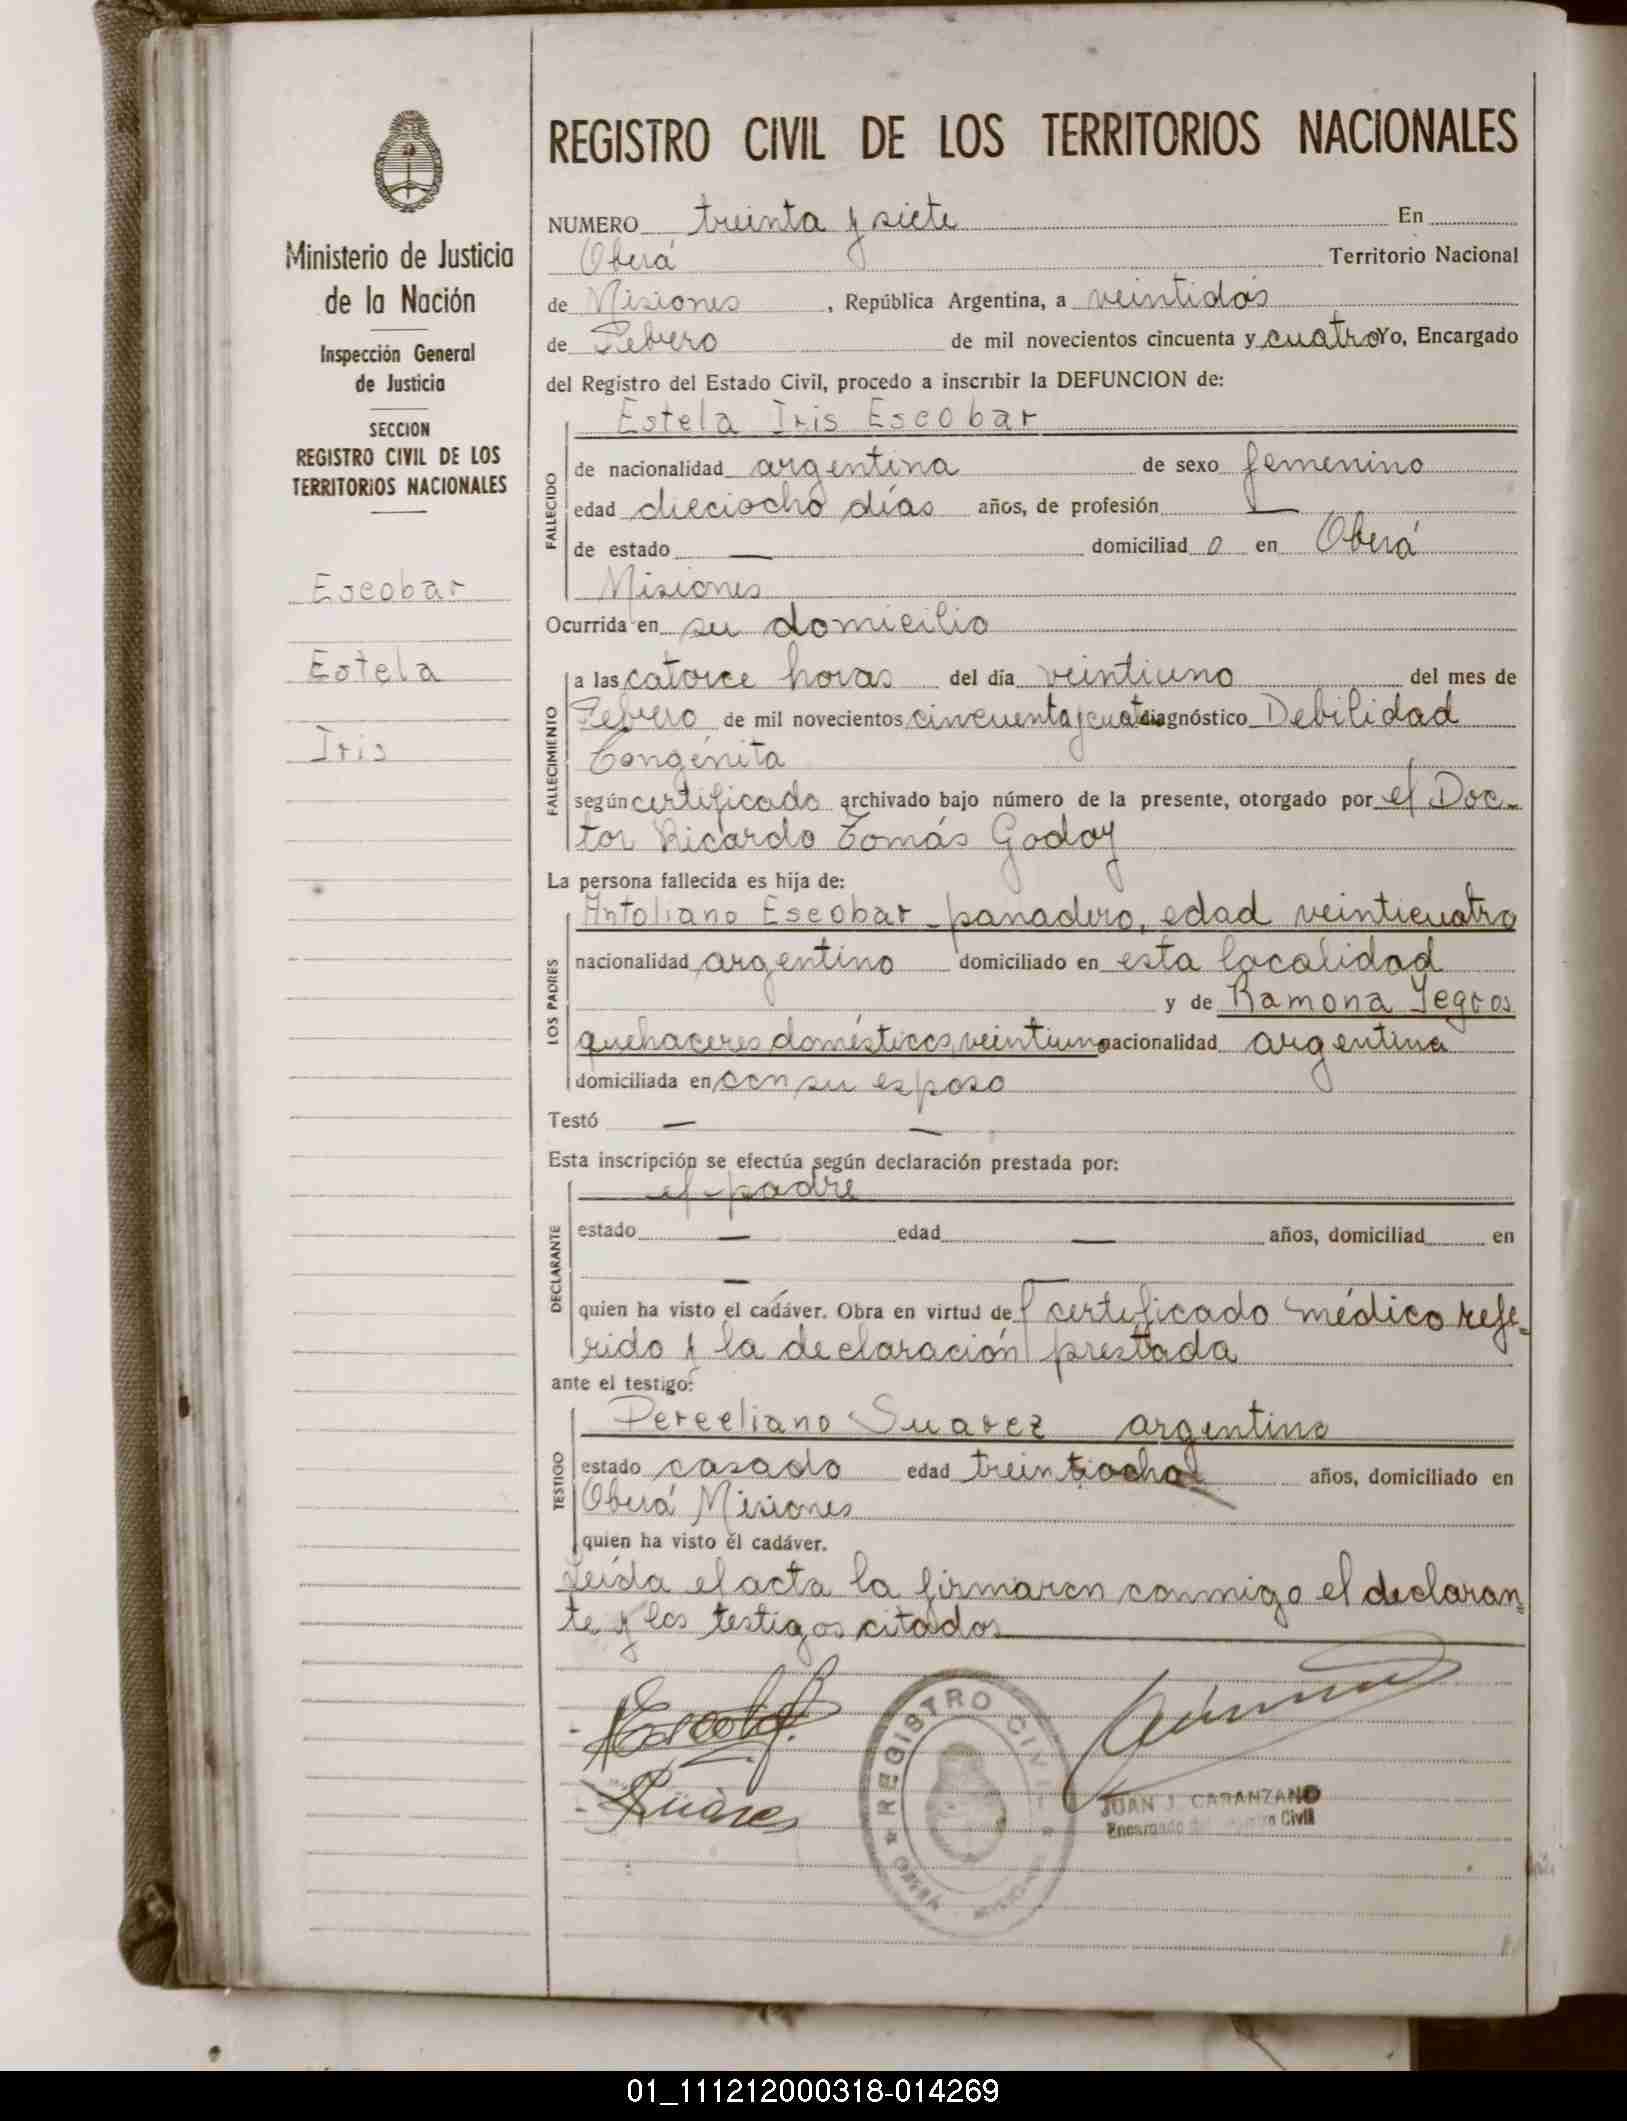 Ministerio de Justicia
de la Nación
Inspección General
de Justicia
SECCION
REGISTRO CIVIL DE LOS
TERRITORIOS NACIONALES
Escobar
Estela
Iris
REGISTRO CIVIL DE LOS TERRITORIOS NACIONALES
NUMERO treinta y siete En
Oberá Territorio Nacional
de Misiones , República Argentina, a veintidós
de Febrero de mil novecientos cincuenta y cuatro Yo, Encargado
del Registro del Estado Civil, procedo a inscribir la DEFUNCION de:
Estela Iris Escobar
FALLECIDO
de nacionalidad argentina de sexo femenino
edad dieciocho días años, de profesión —
de estado — domiciliad o en Oberá
Misiones
Ocurrida en su domicilio
FALLECIMIENTO
a las catorce horas del día veintiuno del mes de
Febrero de mil novecientos cincuenta y cuatro diagnóstico Debilidad
Congénita
según certificado archivado bajo número de la presente, otorgado por el Doc-
tor Ricardo Tomás Godoy
La persona fallecida es hija de:
LOS PADRES
Antoliano Escobar - panadero, edad veinticuatro
nacionalidad argentino domiciliado en esta localidad
y de Ramona Yegros
quehaceres domésticos, veintiuno nacionalidad argentina
domiciliada en con su esposo
Testó — —
Esta inscripción se efectúa según declaración prestada por:
DECLARANTE
el padre
estado — edad — años, domiciliad en
—
quien ha visto el cadáver. Obra en virtud del certificado médico refe-
rido y la declaración prestada
ante el testigo:
TESTIGO
Perceliano Suarez argentino
estado casado edad treintiocho años, domiciliado en
Oberá Misiones
quien ha visto el cadáver.
Leída el acta la firmaron conmigo el declaran-
te y los testigos citados
Escobar
Suárez
REGISTRO CIVIL
OBERA
JUAN J. CARANZANO
Encargado del Registro Civil
01_111212000318-014269